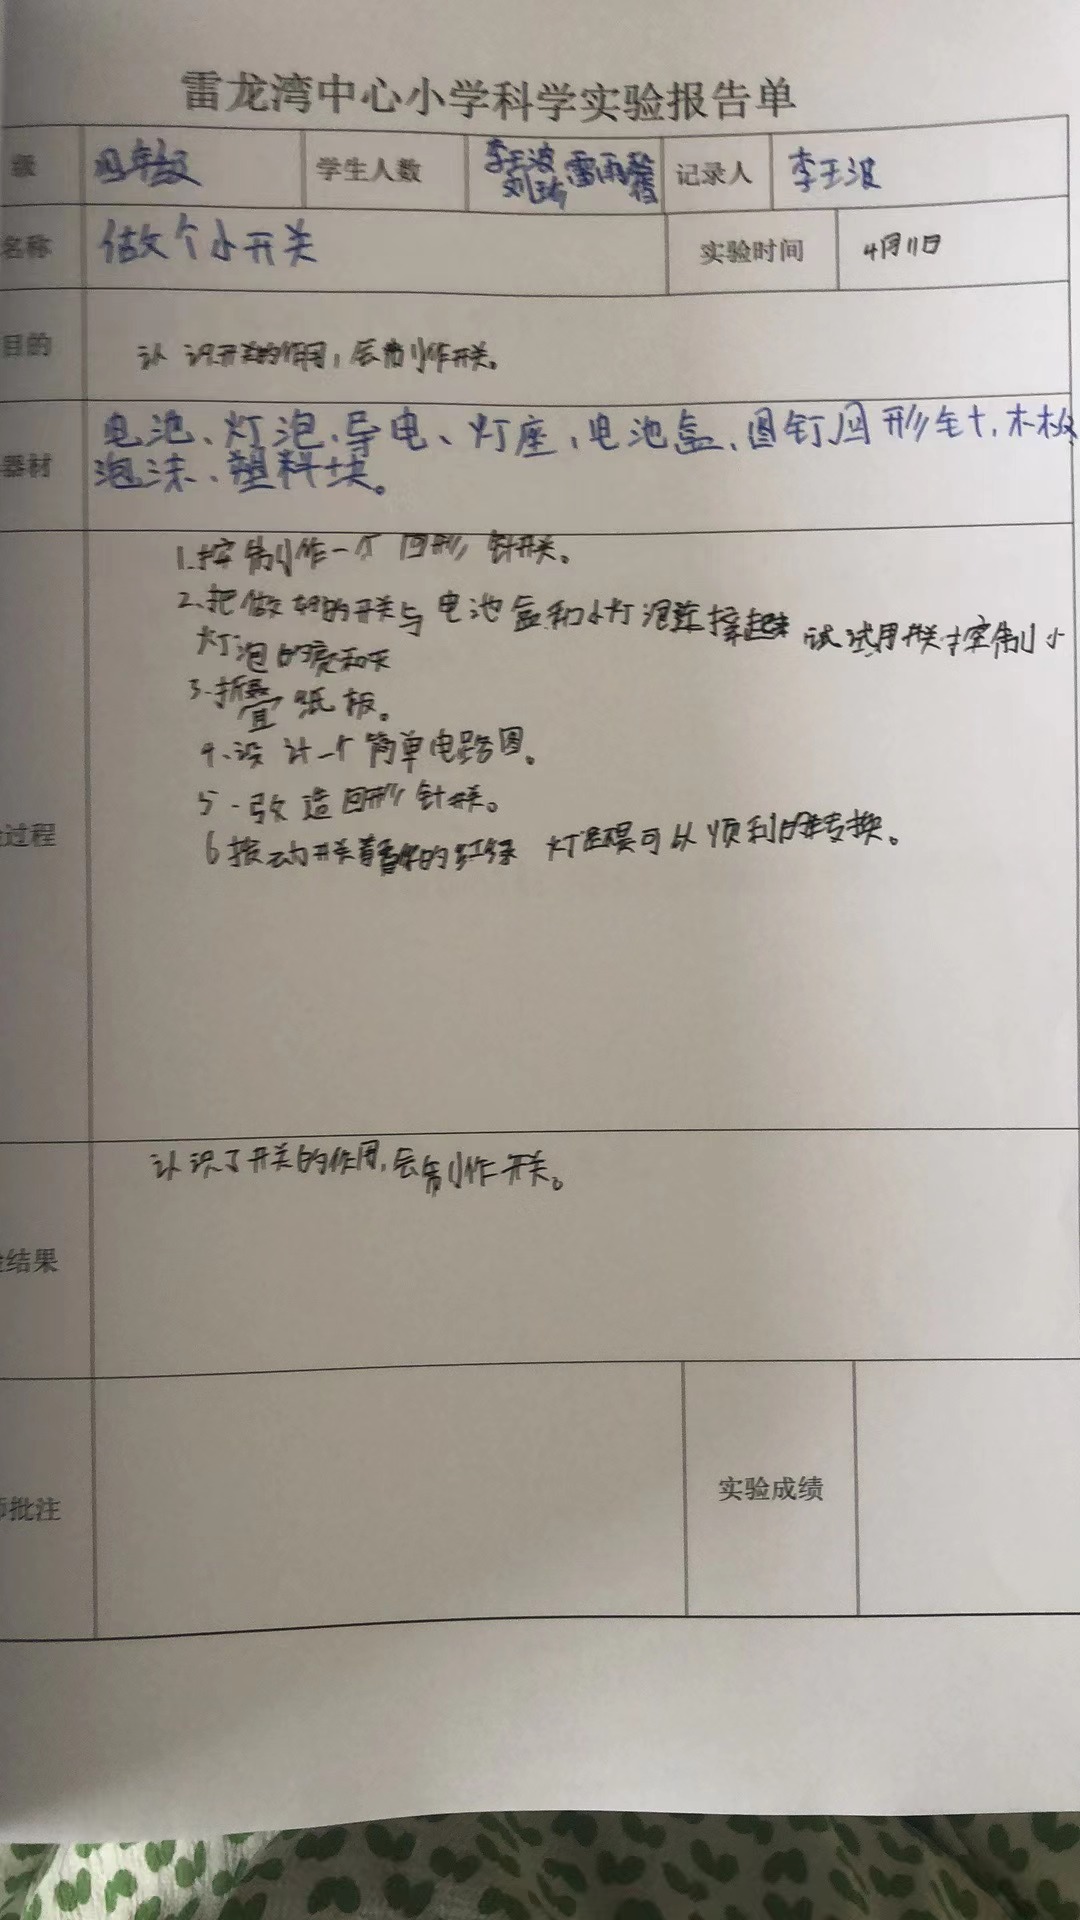 雷龙湾中心小学科学实验报告单
级 四年级 学生人数 李玉波 雷雨馨 记录人 李玉波
刘
名称 做个小开关 实验时间 4月11日
目的 认识开关的作用,会制作开关。
器材 电池、灯泡、导电、灯座、电池盒、图钉回形针、木板
泡沫、塑料块。
过程
1.控制作一个回形针开关。
2.把做好的开关与电池盒和小灯泡连接起来 试试用开关控制小
灯泡的亮和灭
3.折叠纸板。
4.设计一个简单电路图。
5.改造回形针开关。
6按动开关看看你的红绿灯是否可以顺利的转换。
结果 认识了开关的作用,会制作开关。
师批注 实验成绩